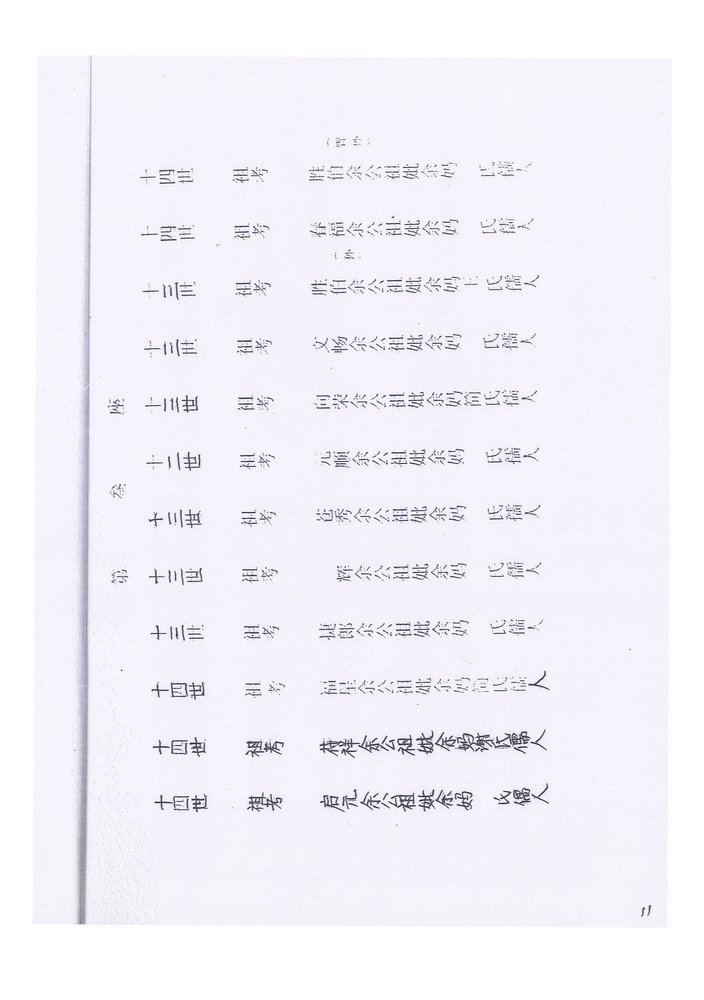 第叁座
(曾孙)
十四世 祖考 胜伯余公祖妣余妈 氏孺人
十四世 祖考 春福余公祖妣余妈 氏孺人
(孙)
十三世 祖考 胜伯余公祖妣余妈王氏孺人
十三世 祖考 文畅余公祖妣余妈 氏孺人
十三世 祖考 向荣余公祖妣余妈简氏孺人
十二世 祖考 元顺余公祖妣余妈 氏孺人
十三世 祖考 苍秀余公祖妣余妈 氏孺人
十三世 祖考 辉余公祖妣余妈 氏孺人
十三世 祖考 捷郎余公祖妣余妈 氏孺人
十四世 祖考 福星余公祖妣余妈简氏孺人
十四世 祖考 祥余公祖妣余妈谢氏孺人
十四世 祖考 启元余公祖妣余妈 氏孺人
11